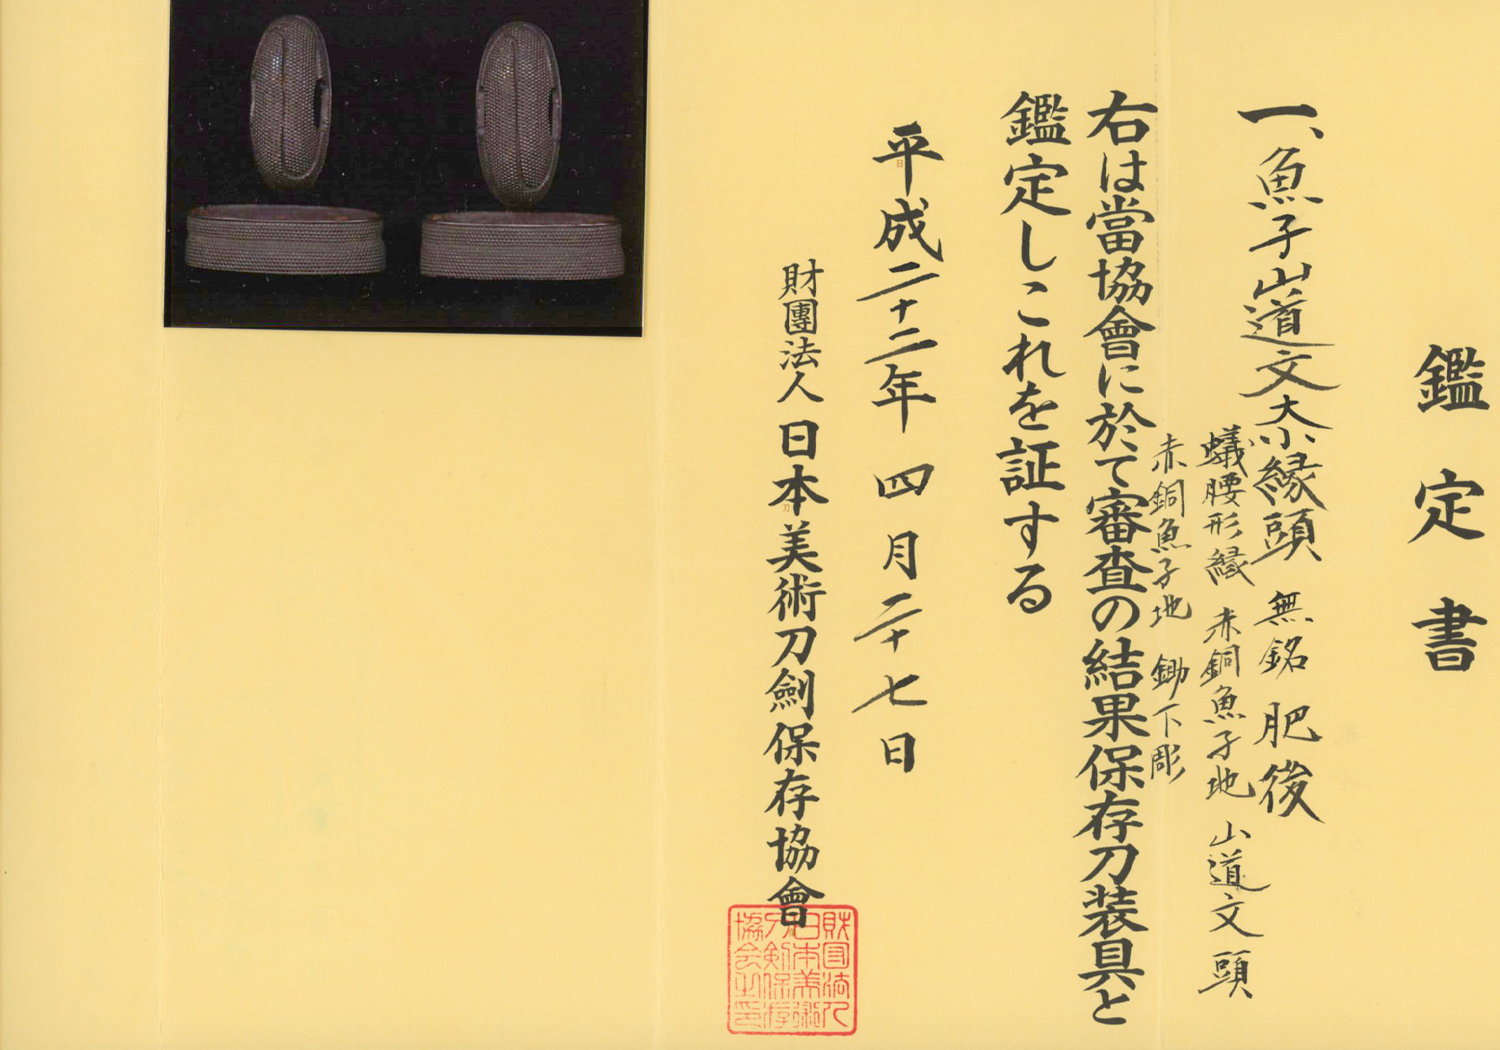 鑑定書
一、魚子山道文大小縁頭 無銘 肥後
蟻腰形縁 赤銅魚子地 山道文 頭
赤銅魚子地 鋤下彫
右は當協會に於て審査の結果保存刀装具と
鑑定しこれを証する
平成二十二年 四月二十七日
財團法人 日本美術刀劍保存協會
財団法人
日本美術
刀剣保存
協会之印